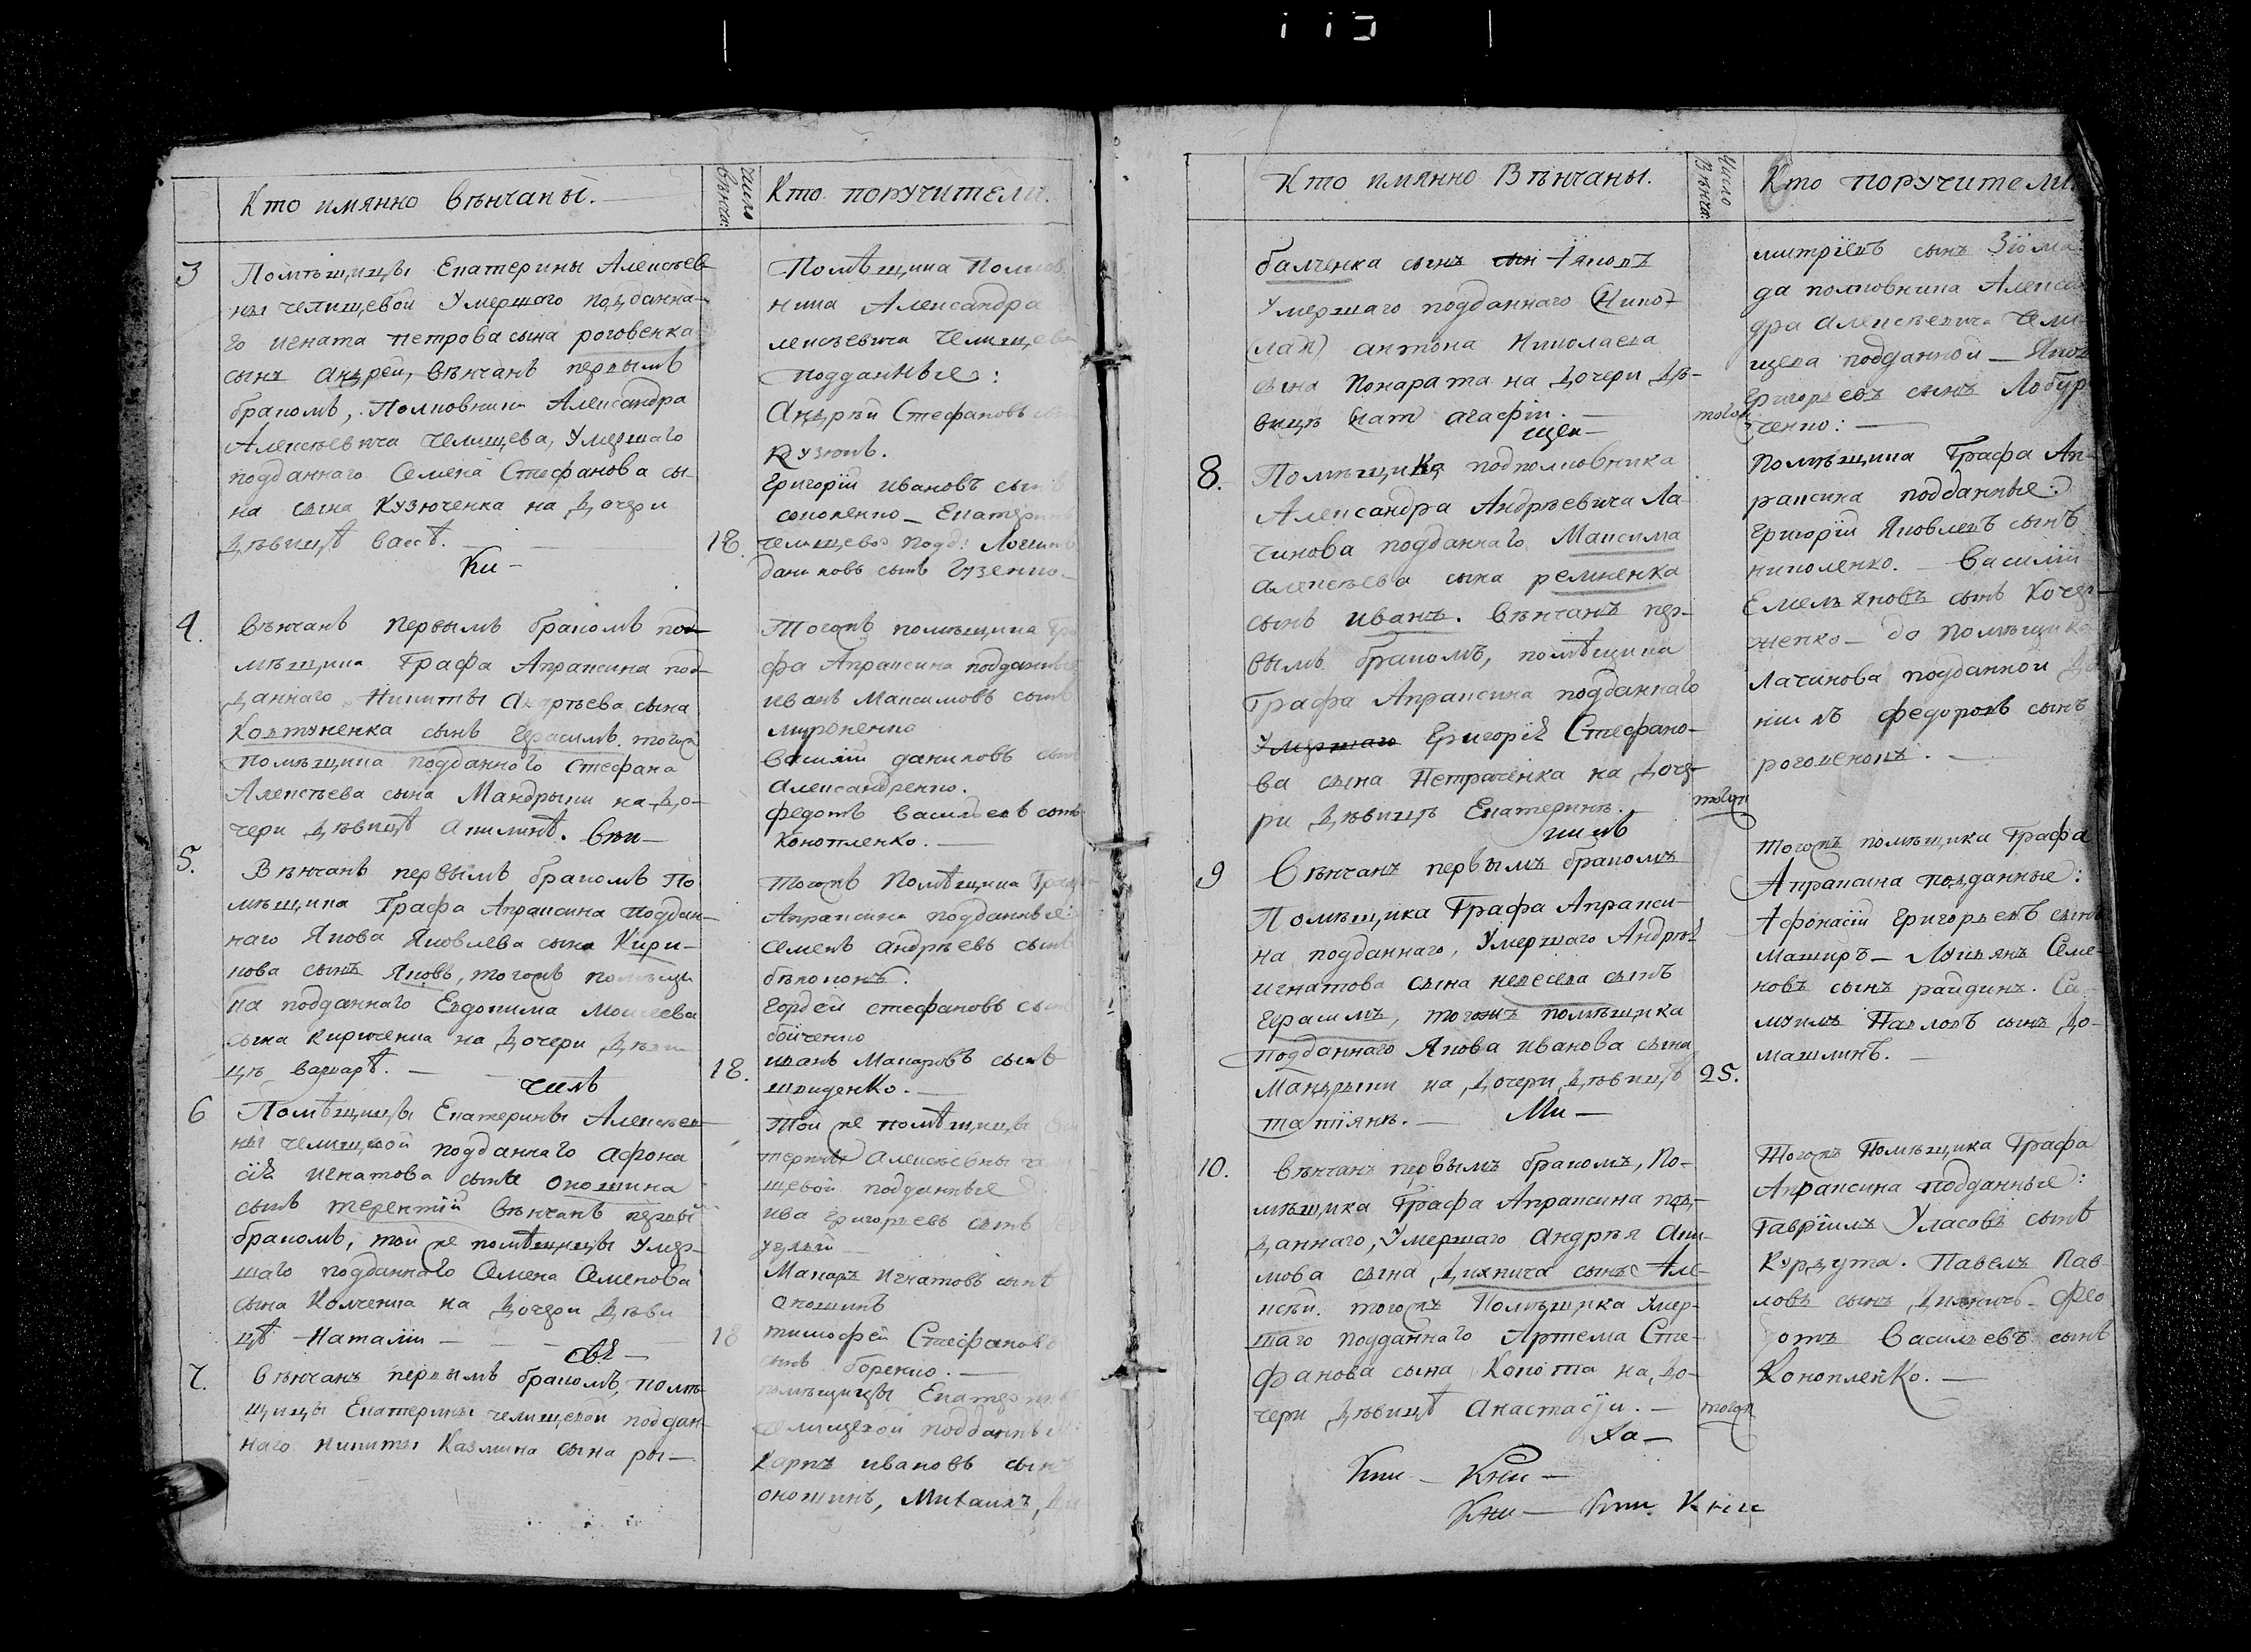 Кто имянно вѣнчаны.
число вѣнча:
Кто поручители.
3
Помѣщицы Екатерины Алексѣев
ны челищевой Умершаго подданна-
го игната петрова сына роговенка
сынъ андрей, вѣнчанъ первымъ
бракомъ, Полковника Александра
Алексѣевича Челищева, Умершаго
подданнаго Семена Стефанова сы-
на сына Кузюченка на дочери
дѣвицѣ васѣ.
18.
Ки-
Помѣщика Полков
ника Александра
лексѣевича Челищева
подданные:
Андрѣй Стефановъ
Кузюнъ.
Григорій ивановъ сынъ
соколенко - Екатерины
челищевой подд: Логинъ
даниловъ сынъ Гузенко.
4.
Вѣнчанъ первымъ бракомъ по
мѣщика Графа Апраксина под
даннаго Никиты Андрѣева сына
Колтуненка сынъ Герасимъ тогожъ
помѣщика подданнаго Стефана
Алексѣева сына Мандрыки на до-
чери дѣвицѣ Акилинѣ. вѣи-
Тогожъ помѣщика Гра
фа Апраксина подданные
иванъ Максимовъ сынъ
мироненко
василій даниловъ сынъ
Александренко.
федотъ васильевъ сынъ
Конопленко.
5.
Вѣнчанъ первымъ бракомъ По
мѣщика Графа Апраксина поддан-
наго Якова Яковлева сына Кири-
кова сынъ Яковъ, тогожъ помѣщи
ка подданнаго Евдокима Моисеева
сына кириченка на дочери дѣви
цѣ варварѣ.
18.
чимъ
Тогожъ Помѣщика Графа
Апраксина подданные:
Семенъ андрѣевъ сынъ
бѣлоконъ.
Гордей стефановъ сынъ
бойченко
иванъ Макаровъ сынъ
швиденко.
6
Помѣщицы Екатерины Алексѣев
ны челищевой подданнаго афона
сія игнатова сына окошина
сынъ терентій вѣнчанъ первый
бракомъ, той же помѣщицы Умер-
шаго подданнаго Семена Семенова
сына Колченка на дочери дѣви
цѣ Наталіи
18
свѣ-
Той же помѣщицы Ека
терины Алексѣевны че
щевой подданные
ива Григорьевъ сынъ
Макаръ игнатовъ сынъ
окошинъ
тимофей Стефановъ
сынъ боренко.
7.
Вѣнчанъ первымъ бракомъ, помѣ
щицы Екатерины челищевой поддан-
наго никиты Казмина сына ры-
помѣщицы Екатерины
Челищевой подданные
Карпъ ивановъ сынъ
окошинъ, Михаилъ, Ди
Кто имянно Вѣнчаны.
Число Вѣнча:
Кто поручители.
балченка сынъ сын Iяковъ
Умершаго подданнаго
антона Николаева
сына Понарата на дочери дѣ-
вицѣ агафіи.
тогож
щен-
митріевъ сынъ Зіома.
да полковника Алекса
дра алексѣевича Чели
щева подданной - Яков
Григорьевъ сынъ Лобур
ченко:
8.
Помѣщика подполковника
Александра Андрѣевича Ла
чинова подданнаго Максима
алексѣева сына ремненка
сынъ иванъ. вѣнчанъ пер-
вымъ бракомъ, помѣщика
Графа Апраксина подданнаго
Умершаго Григорія Стефано-
ва сына Петраченка на доче-
ри дѣвицѣ Екатеринѣ.
тогож
нимъ
Помѣщика Графа Ап-
раксина подданные:
Григорій Яковлевъ сынъ
николенко. - Василій
Емельяновъ сынъ Кочер-
женко - да помѣщика
лачинова подданной Да
ніилъ федоровъ сынъ
роговенокъ.
9
Вѣнчанъ первымъ бракомъ
Помѣщика Графа Апракси-
на подданнаго, Умершаго Андрѣя
игнатова сына невесела сынъ
Герасимъ, тогожъ помѣщика
подданнаго Якова иванова сына
Мандрыки на дочери дѣвицѣ
татіянѣ.
25.
Ми-
Тогожъ помѣщика Графа
Апраксина подданные:
Афонасій григорьевъ сынъ
маширъ - Лукьянъ Семе-
новъ сынъ райдинъ. Са-
муилъ Павловъ сынъ До-
машлинъ.
10.
Вѣнчанъ первымъ бракомъ, По-
мѣщика Графа Апраксина под-
даннаго, Умершаго андрѣя аки-
мова сына дикнича сынъ Але-
ксѣй. тогожъ Помѣщика Умер-
шаго подданнаго Артема Сте-
фанова сына Кокота на до-
чери дѣвицѣ Анастасіи.
тогож
ха-
Тогожъ Помѣщика Графа
Апраксина подданные:
Гавріилъ Уласовъ сынъ
Курдута. Павелъ Пав
ловъ сынъ Дикничъ - Фео
дотъ Васильевъ сынъ
Коноплейко.
Кни - Кни -
Кни - Кни Книг